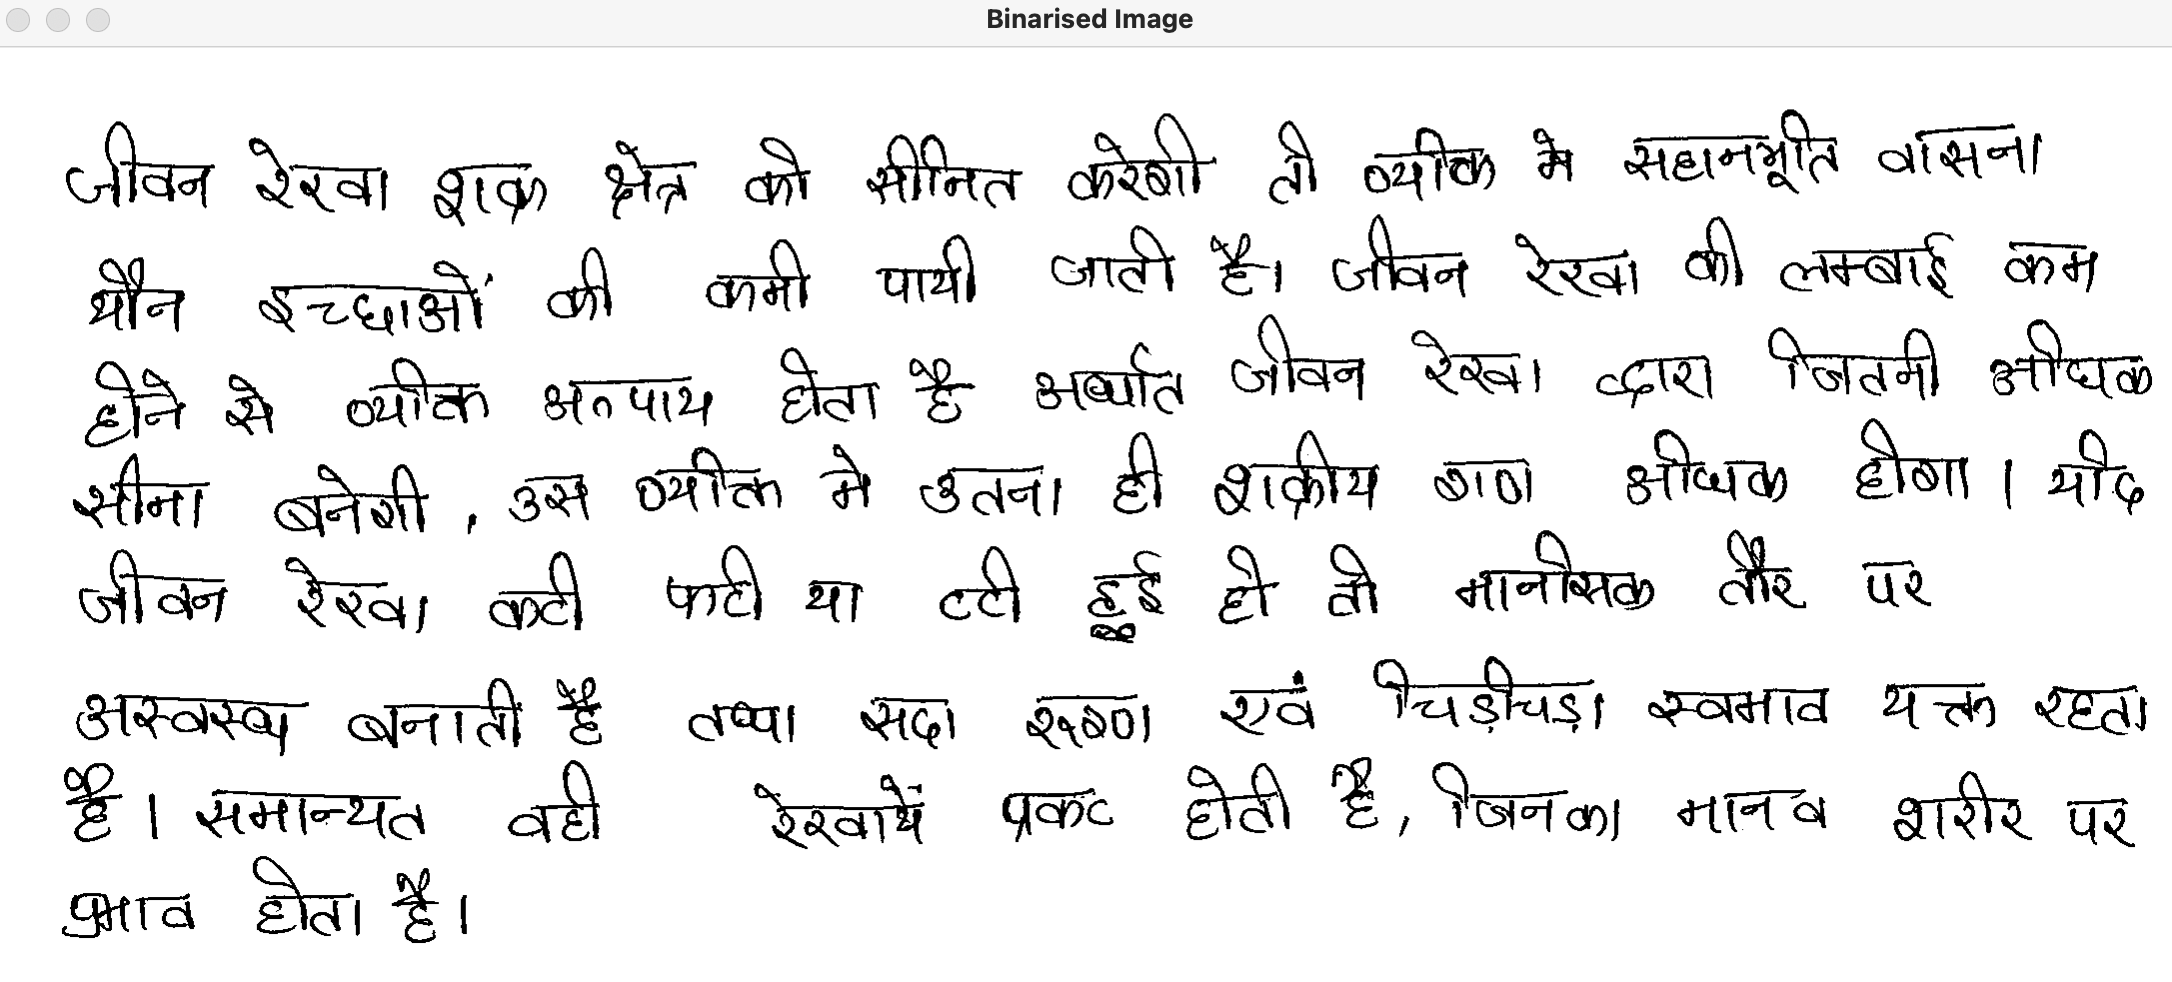 Binarised Image
जीवन रेखा शक्र क्षेत्र को सीनित करेगी तो व्यक्ति मे सहानभूति वासना
यौन इच्छाओं की कमी पायी जाती है। जीवन रेखा की लम्बाई कम
होने से व्यक्ति अल्पाय होता है अर्थात जीवन रेखा द्वारा जितनी अधिक
सीमा बनेगी, उस व्यक्ति मे उतना ही शक्रीय गण अधिक होगा। यदि
जीवन रेखा कटी फटी या टटी हुई हो तो मानसिक तौर पर
अस्वस्थ बनाती है तथा सदा रुग्ण एवं चिड़चिड़ा स्वभाव यक्त रहता
है। समान्यत वही रेखायें प्रकट होती है, जिनका मानव शरीर पर
प्रभाव होता है।